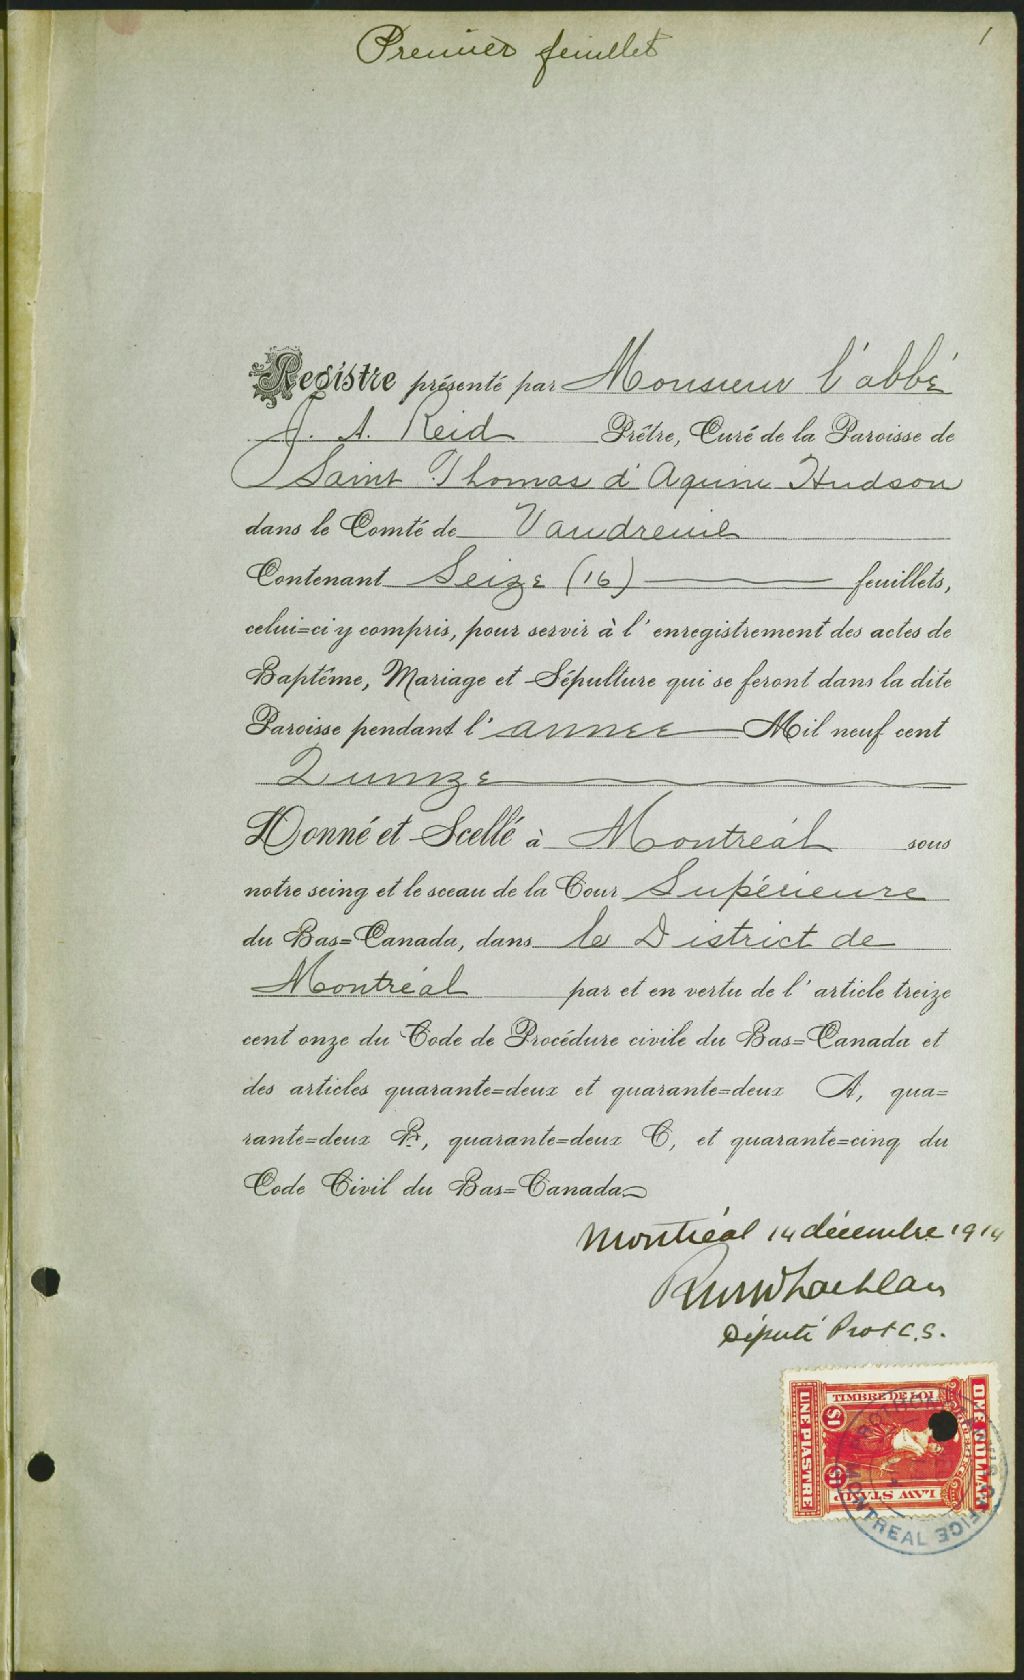 Premier feuillet
1
Registre présenté par Monsieur l'abbé
J. A. Reid Prêtre, Curé de la Paroisse de
Saint Thomas d'Aquin Hudson
dans le Comté de Vaudreuil
Contenant Seize (16) feuillets,
celui=ci y compris, pour servir à l'enregistrement des actes de
Baptême, Mariage et Sépulture qui se feront dans la dite
Paroisse pendant l'année Mil neuf cent
Quinze
Donné et Scellé à Montréal sous
notre seing et le sceau de la Cour Supérieure
du Bas=Canada, dans le District de
Montréal par et en vertu de l'article treize
cent onze du Code de Procédure civile du Bas=Canada et
des articles quarante=deux et quarante=deux A, qua=
rante=deux B, quarante=deux C, et quarante=cinq du
Code Civil du Bas=Canada
Montréal 14 décembre 1914
Député Prot C.S.
TIMBRE DE LOI
UNE PIASTRE
$1
$1
ONE DOLLAR
LAW STAMP
MONTREAL OFFICE